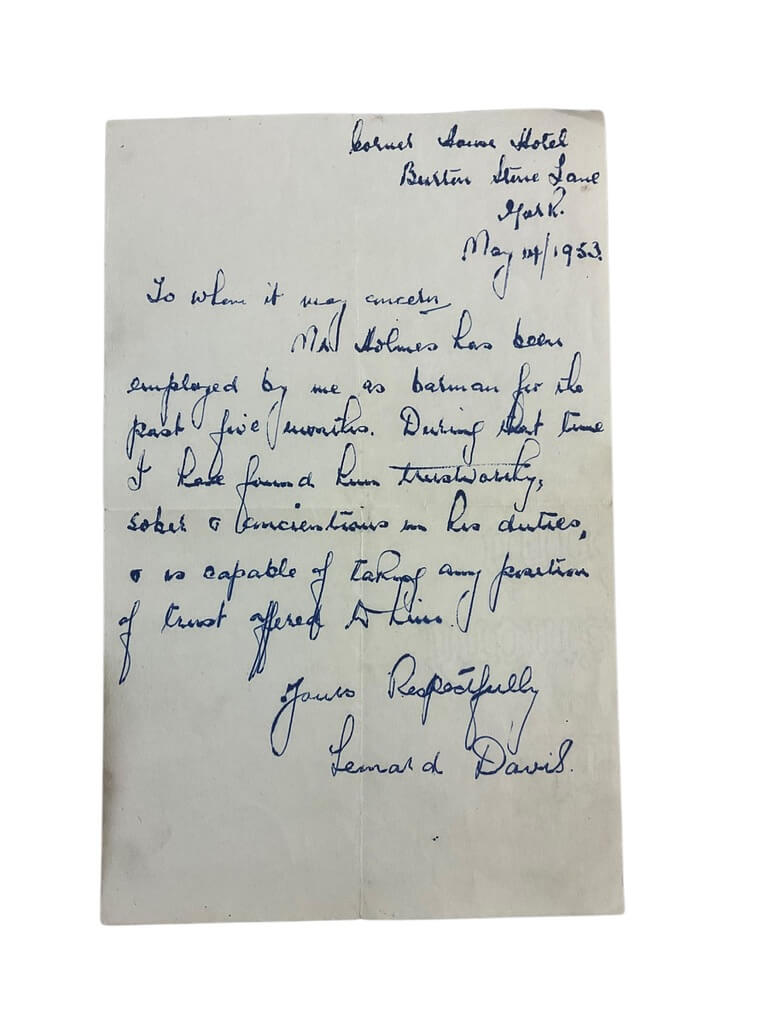 Corner House Hotel
Burton Stone Lane
York.
May 14/1953.
To whom it may concern
Mr Holmes has been
employed by me as barman for the
past five months. During that time
I have found him trustworthy,
sober & concientious in his duties,
& is capable of taking any position
of trust offered to him.
Yours Respectfully
Leonard Davis.